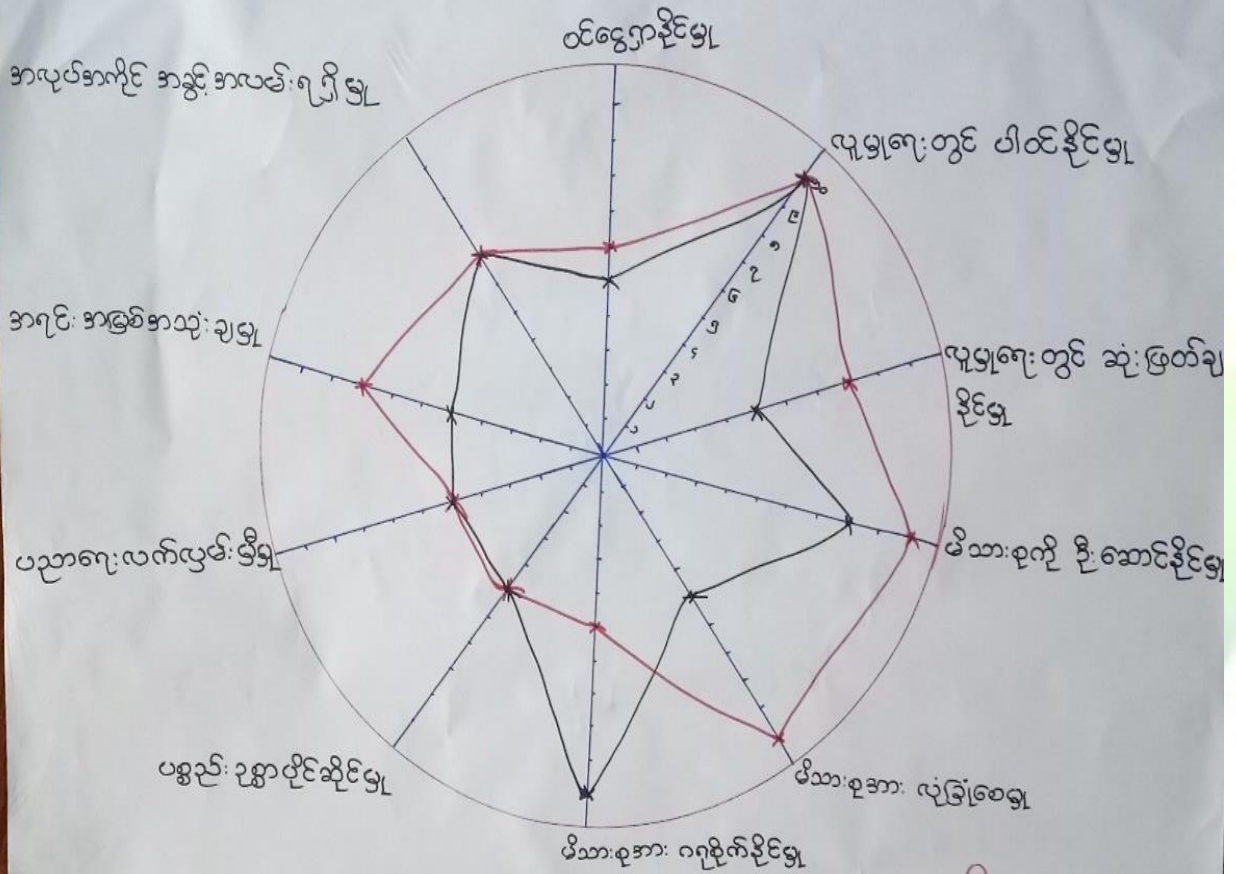 ဝင်ငွေရှာနိုင်မှု
လူမှုရေးတွင် ပါဝင်နိုင်မှု
လူမှုရေးတွင် ဆုံးဖြတ်ချ
နိုင်မှု
မိသားစုကို ဦးဆောင်နိုင်မှု
မိသားစုအား လုံခြုံစေမှု
မိသားစုအား ဂရုစိုက်နိုင်မှု
ပစ္စည်းဥစ္စာပိုင်ဆိုင်မှု
ပညာရေးလက်လှမ်းမှီမှု
အရင်းအမြစ်အသုံးချမှု
အလုပ်အကိုင် အခွင့်အလမ်းရရှိမှု
၁၀
၉
၈
၇
၆
၅
၄
၃
၂
၁